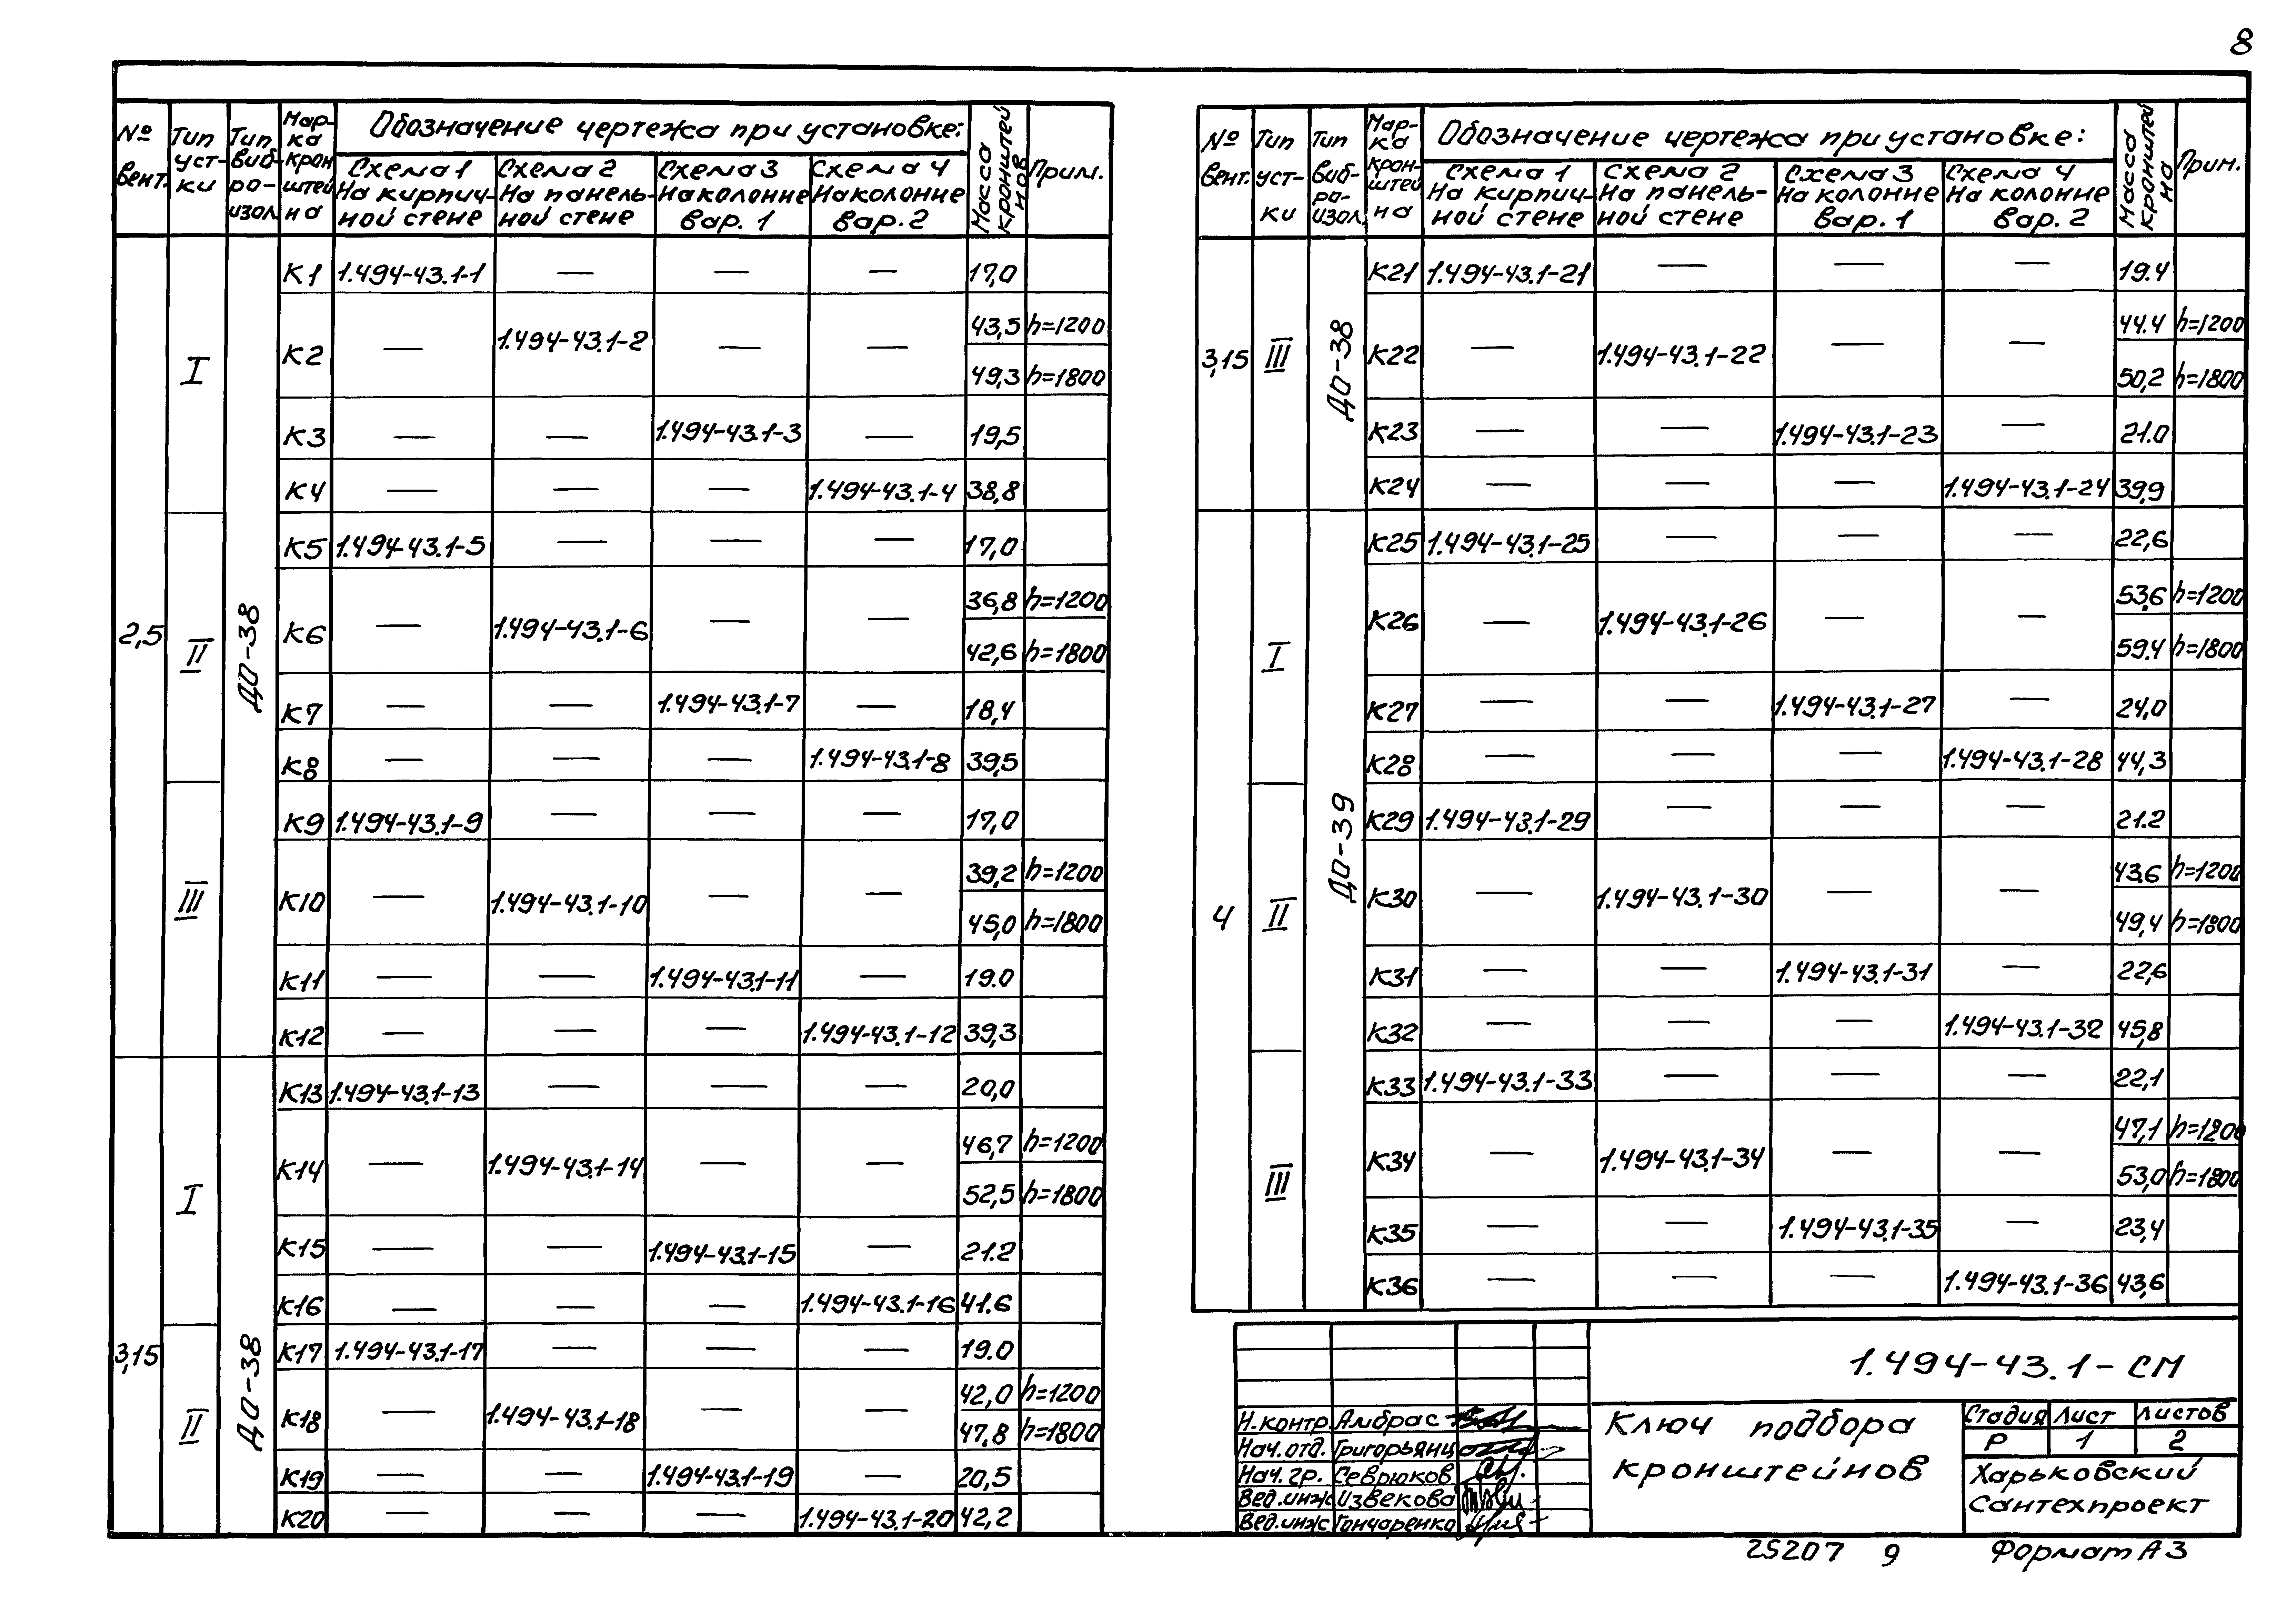 8
№ вент. | Тип уст-ки | Тип виб-ро-изол. | Мар-ка крон штей на | Обозначение чертежа при установке: | Масса кронштей нов | Прим.
Схема 1 На кирпич-ной стене | Схема 2 На панель-ной стене | Схема 3 На колонне вар. 1 | Схема 4 На колонне вар. 2
2,5 | I | ДО-38 | К1 | 1.494-43.1-1 | — | — | — | 17,0
К2 | — | 1.494-43.1-2 | — | — | 43,5 | h=1200
49,3 | h=1800
К3 | — | — | 1.494-43.1-3 | — | 19,5
К4 | — | — | — | 1.494-43.1-4 | 38,8
II | К5 | 1.494-43.1-5 | — | — | — | 17,0
К6 | — | 1.494-43.1-6 | — | — | 36,8 | h=1200
42,6 | h=1800
К7 | — | — | 1.494-43.1-7 | — | 18,4
К8 | — | — | — | 1.494-43.1-8 | 39,5
III | К9 | 1.494-43.1-9 | — | — | — | 17,0
К10 | — | 1.494-43.1-10 | — | — | 39,2 | h=1200
45,0 | h=1800
К11 | — | — | 1.494-43.1-11 | — | 19.0
К12 | — | — | — | 1.494-43.1-12 | 39,3
3,15 | I | ДО-38 | К13 | 1.494-43.1-13 | — | — | — | 20,0
К14 | — | 1.494-43.1-14 | — | — | 46,7 | h=1200
52,5 | h=1800
К15 | — | — | 1.494-43.1-15 | — | 21.2
К16 | — | — | — | 1.494-43.1-16 | 41.6
II | К17 | 1.494-43.1-17 | — | — | — | 19.0
К18 | — | 1.494-43.1-18 | — | — | 42,0 | h=1200
47,8 | h=1800
К19 | — | — | 1.494-43.1-19 | — | 20,5
К20 | — | — | — | 1.494-43.1-20 | 42,2
№ вент. | Тип уст-ки | Тип виб-ро-изол. | Мар-ка крон-штей на | Обозначение чертежа при установке: | Масса кронштей на | Прим.
Схема 1 На кирпич-ной стене | Схема 2 На панель-ной стене | Схема 3 На колонне вар. 1 | Схема 4 На колонне вар. 2
3,15 | III | ДО-38 | К21 | 1.494-43.1-21 | — | — | — | 19.4
К22 | — | 1.494-43.1-22 | — | — | 44.4 | h=1200
50,2 | h=1800
К23 | — | — | 1.494-43.1-23 | — | 21.0
К24 | — | — | — | 1.494-43.1-24 | 39,9
4 | I | ДО-39 | К25 | 1.494-43.1-25 | — | — | — | 22,6
К26 | — | 1.494-43.1-26 | — | — | 53,6 | h=1200
59.4 | h=1800
К27 | — | — | 1.494-43.1-27 | — | 24,0
К28 | — | — | — | 1.494-43.1-28 | 44,3
II | К29 | 1.494-43.1-29 | — | — | — | 21.2
К30 | — | 1.494-43.1-30 | — | — | 43.6 | h=1200
49,4 | h=1800
К31 | — | — | 1.494-43.1-31 | — | 22,6
К32 | — | — | — | 1.494-43.1-32 | 45,8
III | К33 | 1.494-43.1-33 | — | — | — | 22,1
К34 | — | 1.494-43.1-34 | — | — | 47,1 | h=1200
53,0 | h=1800
К35 | — | — | 1.494-43.1-35 | — | 23,4
К36 | — | — | — | 1.494-43.1-36 | 43,6
1.494-43.1-СМ
Н.контр. Амбрас
Нач.отд. Григорьянц
Нач.гр. Севрюков
Вед.инж Извекова
Вед.инж Гончаренко
Ключ подбора
кронштейнов
Стадия | Лист | Листов
Р | 1 | 2
Харьковский
Сантехпроект
25207 9 Формат А3